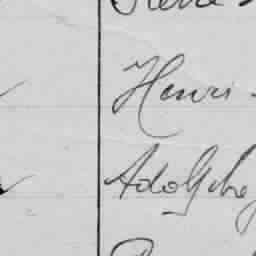 Henri -
Adolphe